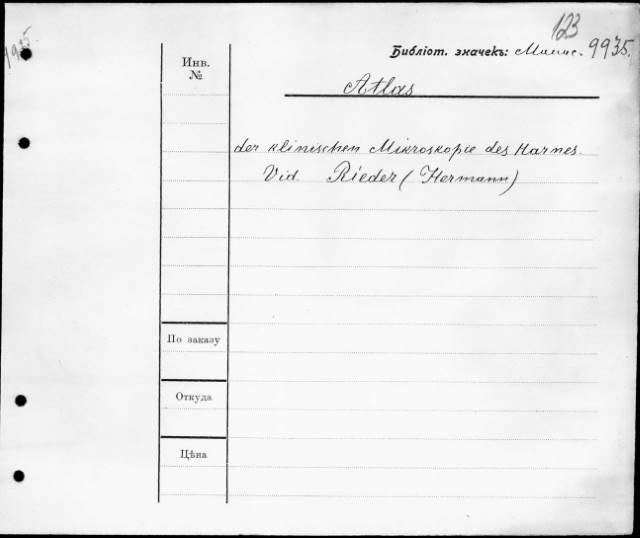 123
Библіот. значекъ: 9935.
Инв.
№
Atlas
der klinischen Mikroskopie des Harnes.
Vid. Rieder (Hermann)
По заказу
Откуда
Цѣна